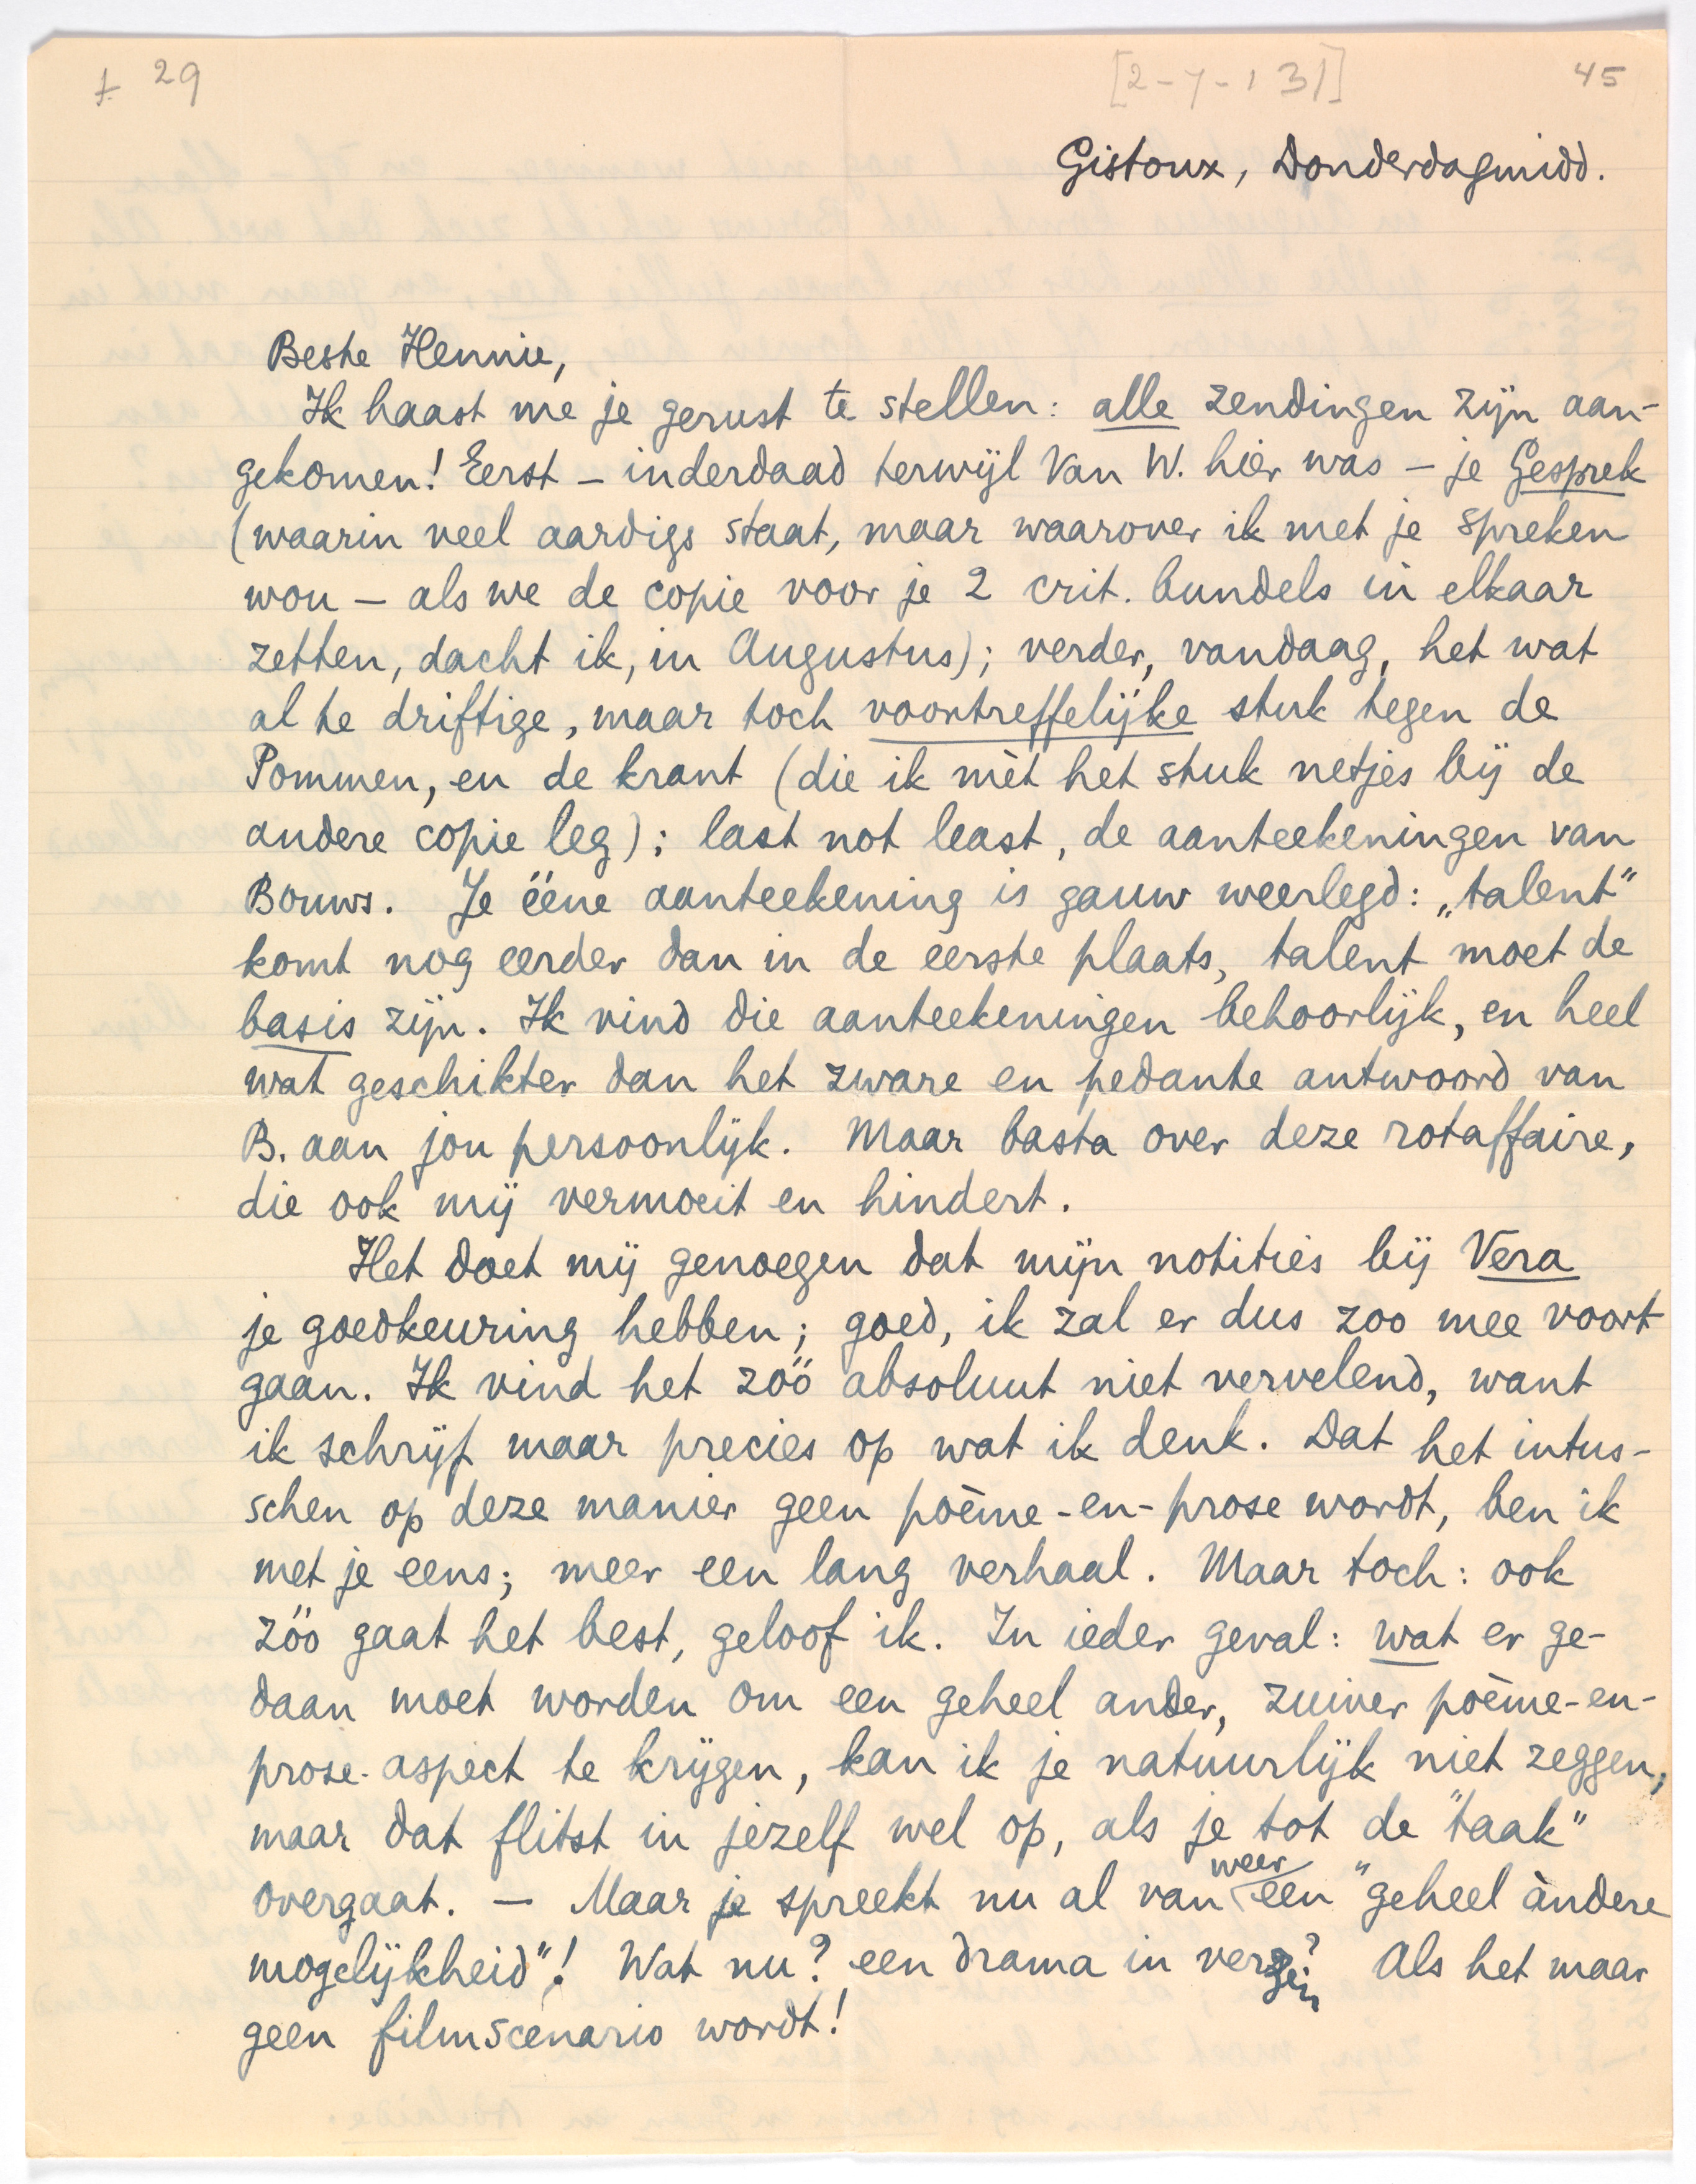 ± 29
[2-7-'31]
45
Gistoux, Donderdagmidd.
Beste Hennie,
Ik haast me je gerust te stellen: alle zendingen zijn aan-
gekomen! Eerst – inderdaad terwijl Van W. hier was – je Gesprek
(waarin veel aardigs staat, maar waarover ik met je spreken
wou – als we de copie voor je 2 crit. bundels in elkaar
zetten, dacht ik, in Augustus); verder, vandaag, het wat
al te driftige, maar toch voortreffelijke stuk tegen de
Pommen, en de krant (die ik mèt het stuk netjes bij de
andere copie leg); last not least, de aanteekeningen van
Bouws. Je ééne aanteekening is gauw weerlegd: „talent"
komt nog eerder dan in de eerste plaats, talent moet de
basis zijn. Ik vind die aanteekeningen behoorlijk, en heel
wat geschikter dan het zware en pedante antwoord van
B. aan jou persoonlijk. Maar basta over deze rotaffaire,
die ook mij vermoeit en hindert.
Het doet mij genoegen dat mijn notities bij Vera
je goedkeuring hebben; goed, ik zal er dus zoo mee voort
gaan. Ik vind het zóó absoluut niet vervelend, want
ik schrijf maar precies op wat ik denk. Dat het intus-
schen op deze manier geen poème-en-prose wordt, ben ik
met je eens; meer een lang verhaal. Maar toch: ook
zóó gaat het best, geloof ik. In ieder geval: wat er ge-
daan moet worden om een geheel ander, zuiver poème-en-
prose-aspect te krijgen, kan ik je natuurlijk niet zeggen,
maar dat flitst in jezelf wel op, als je tot de "taak"
overgaat. – Maar je spreekt nu al van weer een "geheel àndere
mogelijkheid"! Wat nu? een drama in verzen? Als het maar
geen filmscenario wordt!